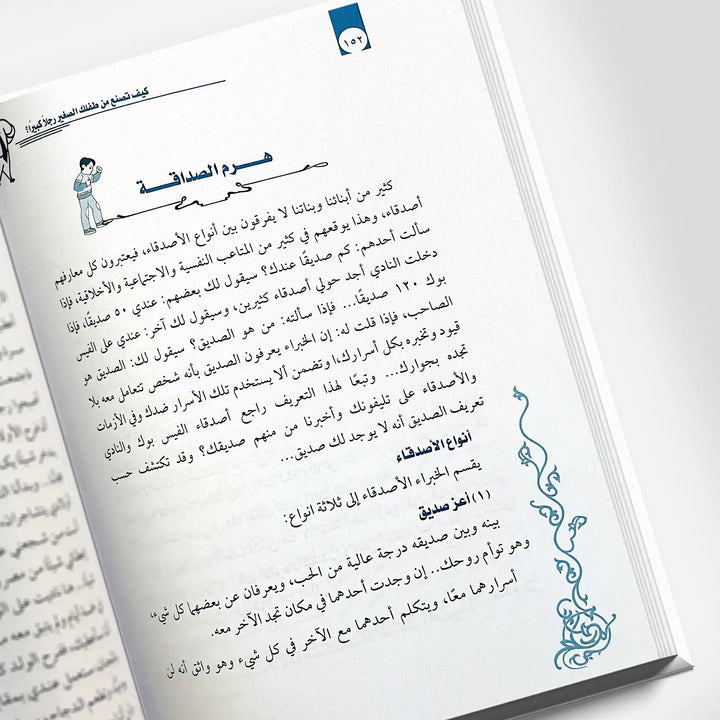 ١٥٢
كيف تصنع من طفلك الصغير رجلاً كبيراً؟
هرم الصداقة
كثير من أبنائنا وبناتنا لا يفرقون بين أنواع الأصدقاء، فيعتبرون كل معارفهم
أصدقاء، وهذا يوقعهم في كثير من المتاعب النفسية والاجتماعية والأخلاقية، فإذا
سألت أحدهم: كم صديقًا عندك؟ سيقول لك بعضهم: عندي ٥٠ صديقًا، فإذا
دخلت النادي أجد حولي أصدقاء كثيرين، وسيقول لك آخر: عندي على الفيس
بوك ١٢٠ صديقًا... فإذا سألته: من هو الصديق؟ سيقول لك: الصديق هو
الصاحب، فإذا قلت له: إن الخبراء يعرفون الصديق بأنه شخص تتعامل معه بلا
قيود وتخبره بكل أسرارك، وتضمن ألا يستخدم تلك الأسرار ضدك وفي الأزمات
تجده بجوارك... وتبعًا لهذا التعريف راجع أصدقاء الفيس بوك والنادي
والأصدقاء على تليفونك وأخبرنا من منهم صديقك؟ وقد تكتشف حسب
تعريف الصديق أنه لا يوجد لك صديق...
أنواع الأصدقاء
يقسم الخبراء الأصدقاء إلى ثلاثة أنواع:
(١) أعز صديق
بينه وبين صديقه درجة عالية من الحب، ويعرفان عن بعضهما كل شيء،
وهو توأم روحك.. إن وجدت أحدهما في مكان تجد الآخر معه.
أسرارهما معًا، ويتكلم أحدهما مع الآخر في كل شيء وهو واثق أنه لن